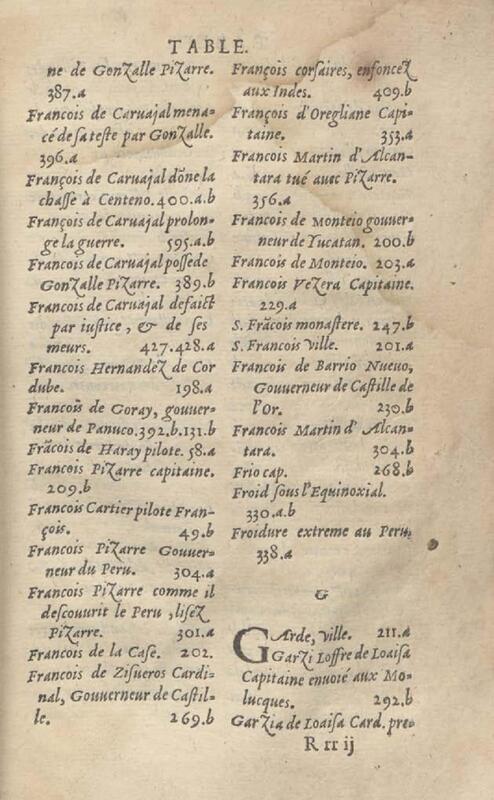 TABLE.
ne de Gonzalle Pizarre.
387.a
Francois de Carvajal mena-
cé de sa teste par Gonzalle.
396.a
François de Carvajal dõne la
chasse à Centeno. 400.a.b
François de Carvajal prolon-
ge la guerre. 595.a.b
Francois de Carvajal possede
Gonzalle Pizarre. 389.b
Francois de Carvajal defaict
par iustice, & de ses
meurs. 427.428.a
Francois Hernandez de Cor
dube. 198.a
Francois de Goray, gouver-
neur de Panuco. 392.b.131.b
Frãcois de Haray pilote. 58.a
Francois Pizarre capitaine.
209.b
Francois Cartier pilote Fran-
çois. 49.b
Francois Pizarre Gouver-
neur du Peru. 304.a
Francois Pizarre comme il
descouvrit le Peru, lisez
Pizarre. 301.a
Francois de la Case. 202.
Francois de Zisueros Cardi-
nal, Gouverneur de Castil-
le. 269.b
François corsaires, enfoncez
aux Indes. 409.b
François d'Oregliane Capi-
taine. 353.a
Francois Martin d'Alcan-
tara tué avec Pizarre.
356.a
Francois de Monteio gouver-
neur de Yucatan. 200.b
Francois de Monteio. 203.a
Francois Vezera Capitaine.
229.a
S. Frãcois monastere. 247.b
S. Francois ville. 201.a
Francois de Barrio Nuevo,
Gouverneur de Castille de
l'Or. 230.b
Francois Martin d'Alcan-
tara. 304.b
Frio cap. 268.b
Froid sous l'Equinoxial.
330.a.b
Froidure extreme au Peru,
338.a
G
GArde, ville. 211.a
Garzi Loffre de Loaisa
Capitaine envoié aux Mo-
lucques. 292.b
Garzia de Loaisa Card. pre-
R rr ij